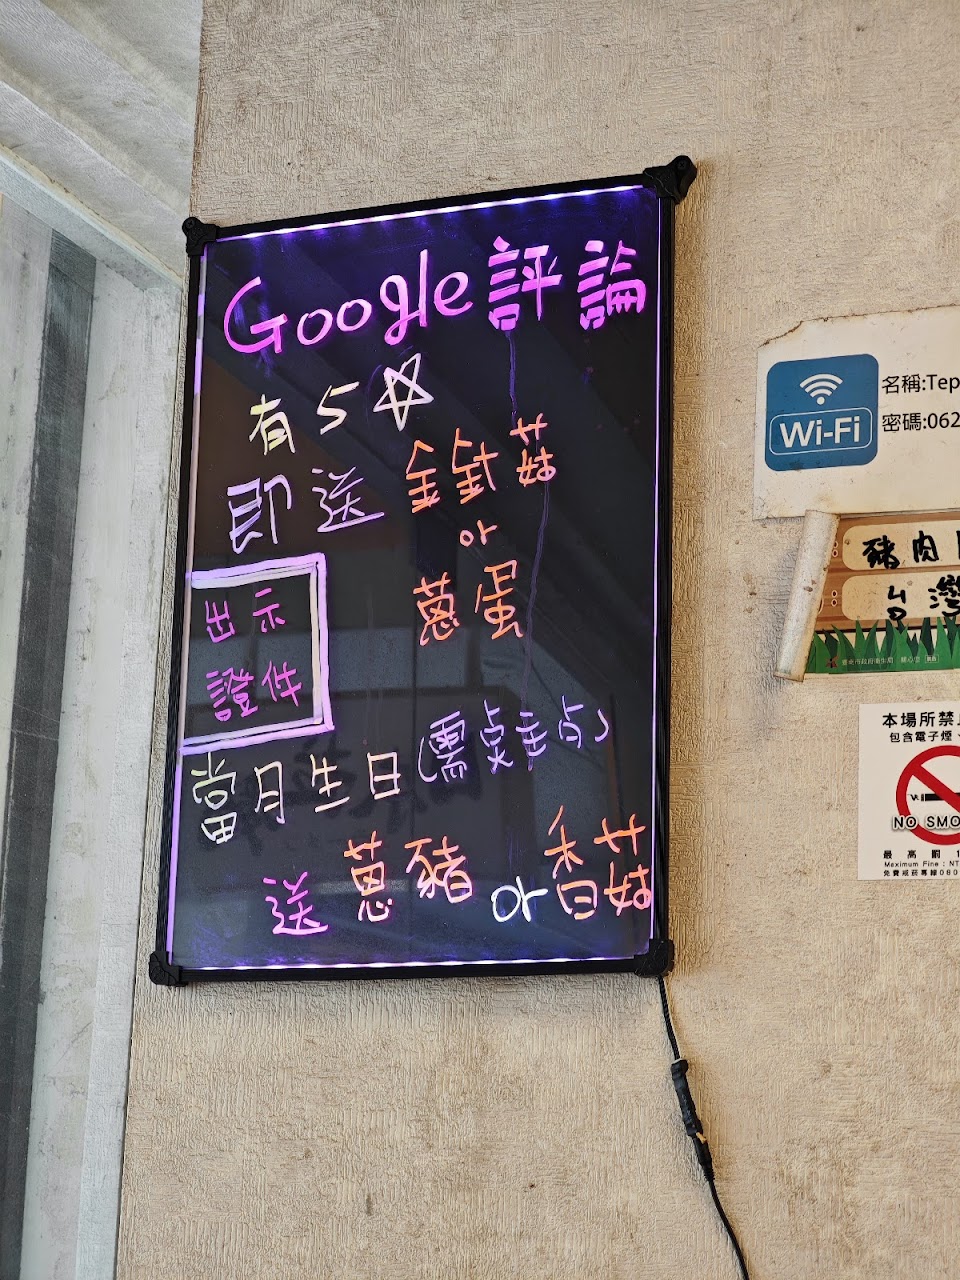 Google 評論
有 5☆
即送 金針菇
or
蔥蛋
出示
證件
當月生日(需桌主点)
送 蔥豬 or 香菇
Wi-Fi
名稱:Tep
密碼:062
豬肉
台灣
臺東市政府衛生局 關心您
本場所禁
包含電子煙
NO SMO
最高罰 1
Maximum Fine : NT
免費戒菸專線080